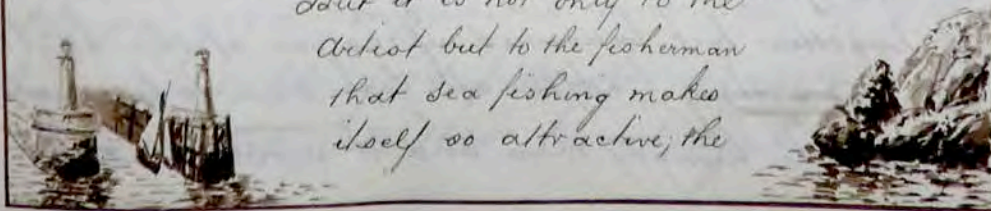 But it is not only to the
artist but to the fisherman
that sea fishing makes
itself so attractive; the